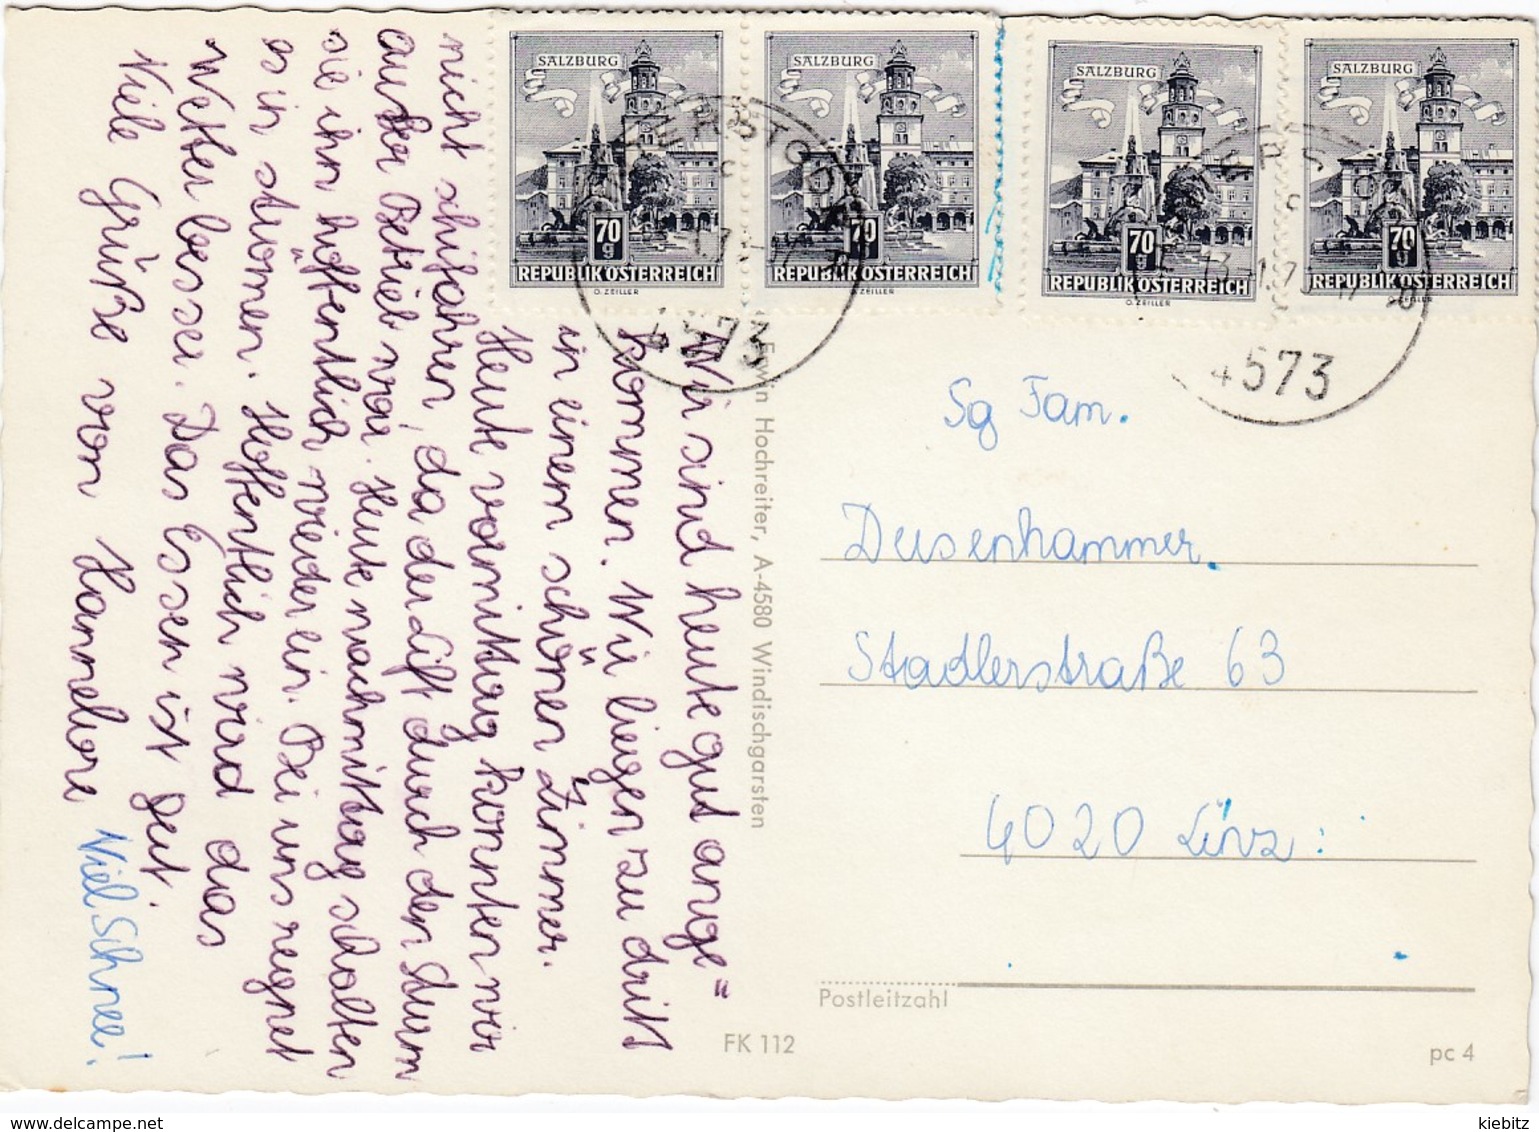 SALZBURG
70
g
REPUBLIK ÖSTERREICH
O. ZEILLER
SALZBURG
70
g
REPUBLIK ÖSTERREICH
O. ZEILLER
SALZBURG
70
g
REPUBLIK ÖSTERREICH
O. ZEILLER
SALZBURG
70
g
REPUBLIK ÖSTERREICH
O. ZEILLER
4573
4573
Wir sind heute gut ange"
kommen. Wir liegen zu dritt
in einem schönen Zimmer.
Heute vormittag konnten wir
nicht schifahren, da der Lift durch den Sturm
außer Betrieb war. Heute nachmittag schalten
sie ihn höffentlich wieder ein. Bei uns regnet
es in strömen. Hoffentlich wird das
Wetter besser. Das Essen ist gut.
Viele Grüße von Hannelore
Viel Schnee!
Erwin Hochreiter, A-4580 Windischgarsten
Sg Fam.
Deisenhammer.
Stadlerstraße 63
4020 Linz:
Postleitzahl
FK 112
pc 4
kiebitz
www.delcampe.net